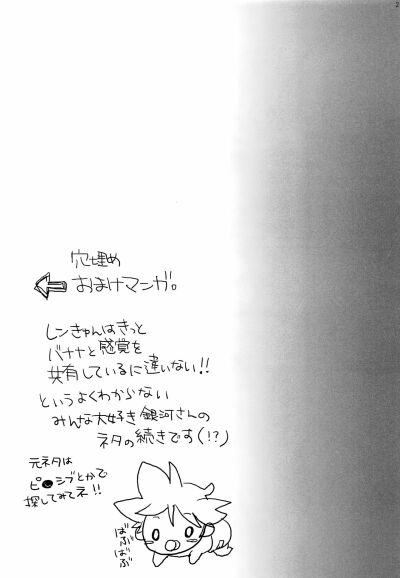 2
穴埋め
おまけマンガ。
レンきゅんはきっと
バナナと感覚を
共有しているに違いない!!
というよくわからない
みんな大好き銀河さんの
ネタの続きです(!?)
元ネタは
ピ●シブとかで
探してみてネ!!
ばぶ
ばぶ